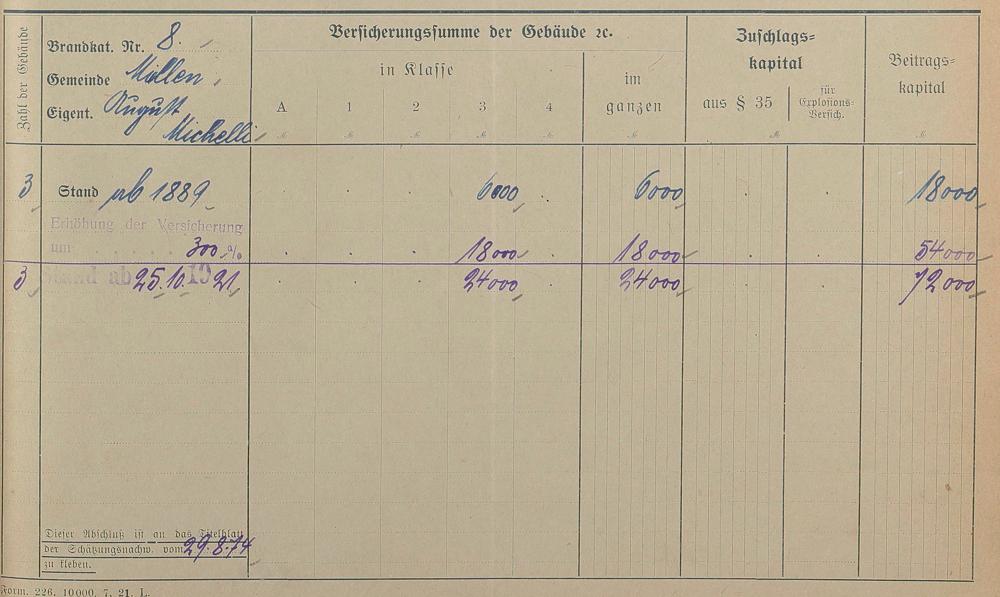 Zahl der Gebäude
Brandkat. Nr. 8.
Gemeinde Mollen
Eigent. August
Michelli
Versicherungssumme der Gebäude ꝛc.
in Klasse
A 1 2 3 4
im
ganzen
Zuschlags=
kapital
aus § 35
für
Explosions=
Versich.
Beitrags=
kapital
3 Stand ab 1889 6000 6000 18000
Erhöhung der Versicherung
um 300 % 18000 18000 54000
3 Stand ab 25.10.1921 24000 24000 72000
Dieser Abschluß ist an das Titelblatt
der Schätzungsnachw. vom 29.8.74
zu kleben.
Form. 226. 10000. 7. 21. L.